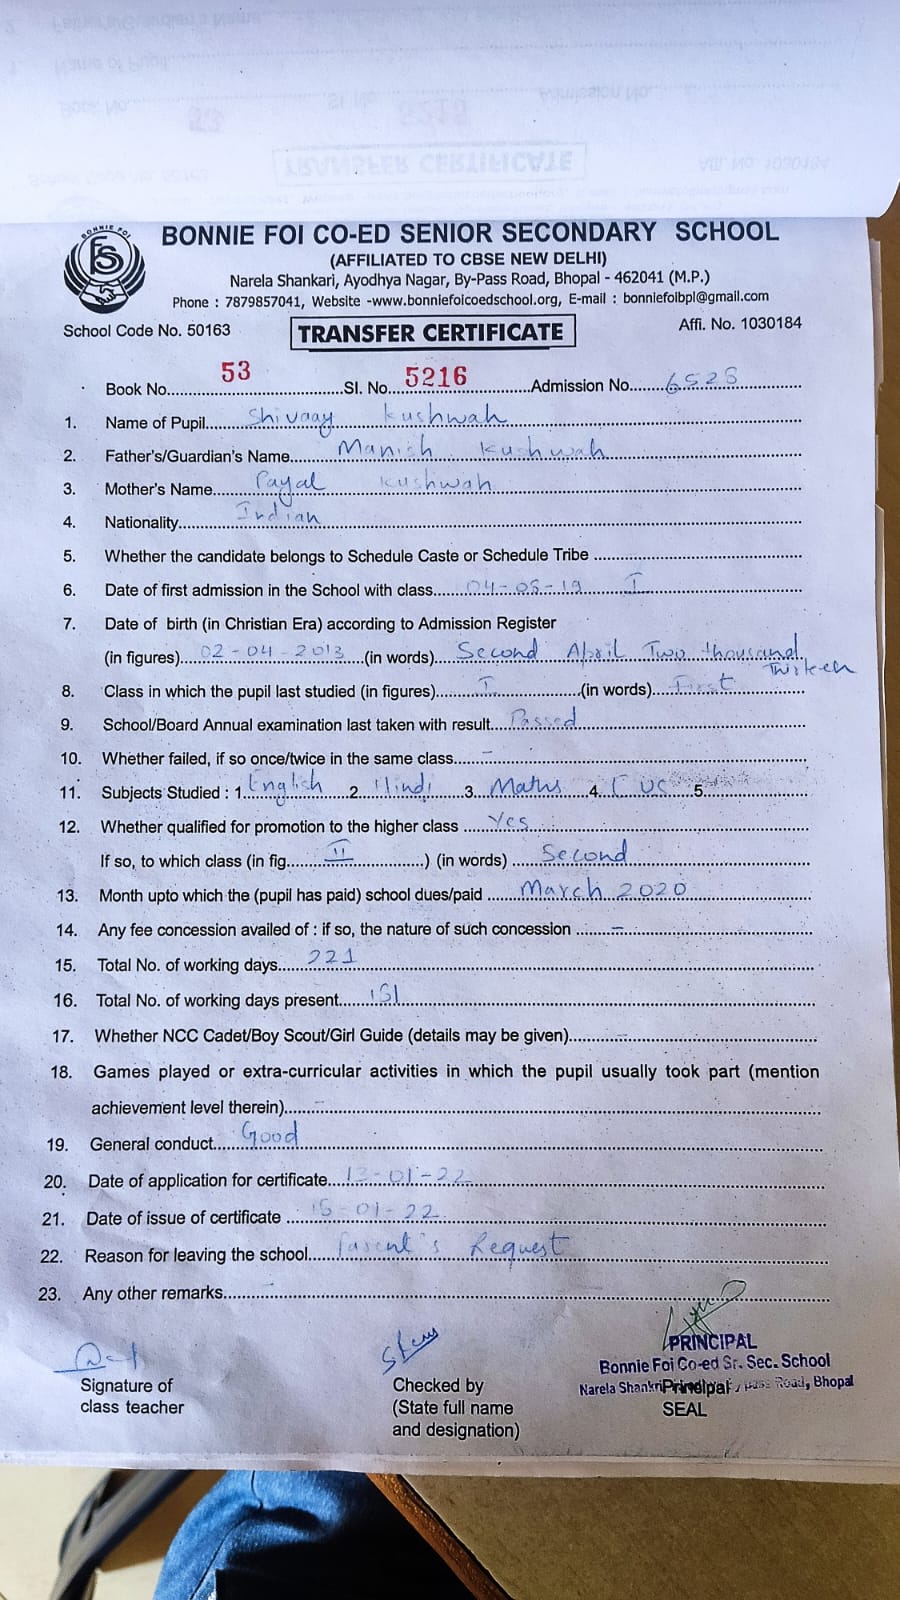 BONNIE FOI
FS
BONNIE FOI CO-ED SENIOR SECONDARY SCHOOL
(AFFILIATED TO CBSE NEW DELHI)
Narela Shankari, Ayodhya Nagar, By-Pass Road, Bhopal - 462041 (M.P.)
Phone : 7879857041, Website -www.bonniefoicoedschool.org, E-mail : bonniefoibpl@gmail.com
School Code No. 50163 TRANSFER CERTIFICATE Affi. No. 1030184
Book No. 53 Sl. No. 5216 Admission No. 6528
1. Name of Pupil Shivaay Kushwah
2. Father's/Guardian's Name Manish Kushwah
3. Mother's Name Payal Kushwah
4. Nationality Indian
5. Whether the candidate belongs to Schedule Caste or Schedule Tribe
6. Date of first admission in the School with class 04-05-19 I
7. Date of birth (in Christian Era) according to Admission Register
(in figures) 02-04-2013 (in words) Second April Two thousand
Thirteen
8. Class in which the pupil last studied (in figures) I (in words) First
9. School/Board Annual examination last taken with result Passed
10. Whether failed, if so once/twice in the same class -
11. Subjects Studied : 1. English 2. Hindi 3. Maths 4. 5.
12. Whether qualified for promotion to the higher class Yes
If so, to which class (in fig. II ) (in words) Second
13. Month upto which the (pupil has paid) school dues/paid March 2020
14. Any fee concession availed of : if so, the nature of such concession -
15. Total No. of working days 221
16. Total No. of working days present
17. Whether NCC Cadet/Boy Scout/Girl Guide (details may be given) -
18. Games played or extra-curricular activities in which the pupil usually took part (mention
achievement level therein) -
19. General conduct Good
20. Date of application for certificate 13-01-22
21. Date of issue of certificate 15-01-22
22. Reason for leaving the school Parent's Request
23. Any other remarks -
PRINCIPAL
Bonnie Foi Co-ed Sr. Sec. School
Narela Shankri Road, Bhopal
Signature of Checked by Principal
class teacher (State full name SEAL
and designation)